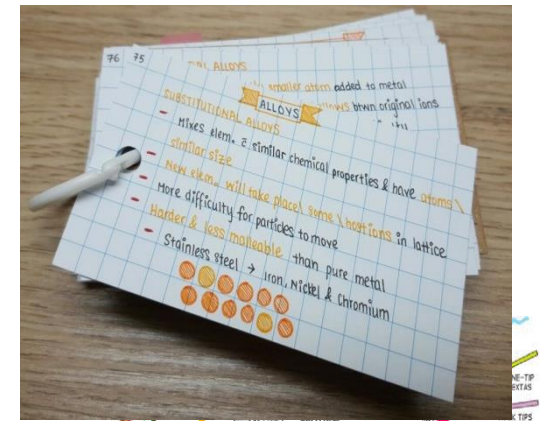 76 75
ALLOYS
smaller atom added to metal
btwn original ions
ALLOYS
SUBSTITUTIONAL ALLOYS
- Mixes elem. c̄ similar chemical properties & have atoms \
similar size
- New elem. will take place \ some \ host ions in lattice
- More difficulty for particles to move
- Harder & less malleable than pure metal
- Stainless steel → Iron, Nickel & Chromium
NE-TIP
EXTAS
K TIPS